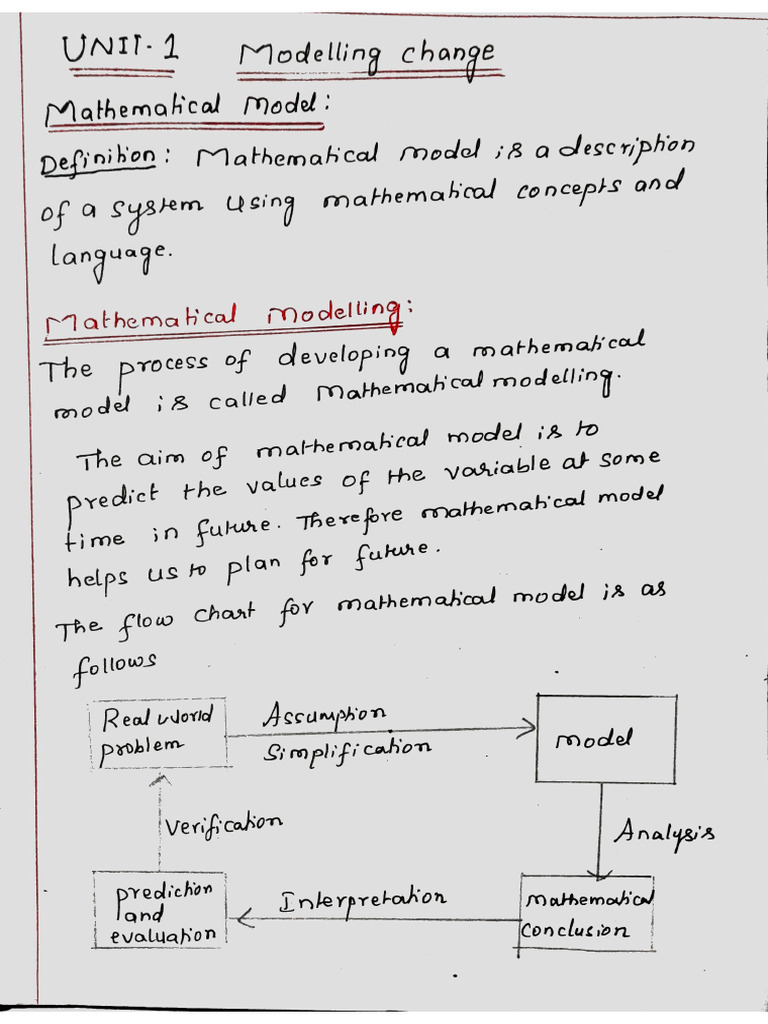 UNIT-1 Modelling change
Mathematical Model:
Definition: Mathematical model is a description
of a system using mathematical concepts and
language.
Mathematical Modelling:
The process of developing a mathematical
model is called Mathematical modelling.
The aim of mathematical model is to
predict the values of the variable at some
time in future. Therefore mathematical model
helps us to plan for future.
The flow chart for mathematical model is as
follows
Real World
problem
Assumption
Simplification
model
Verification
Analysis
prediction
and
evaluation
Interpretation
mathematical
conclusion